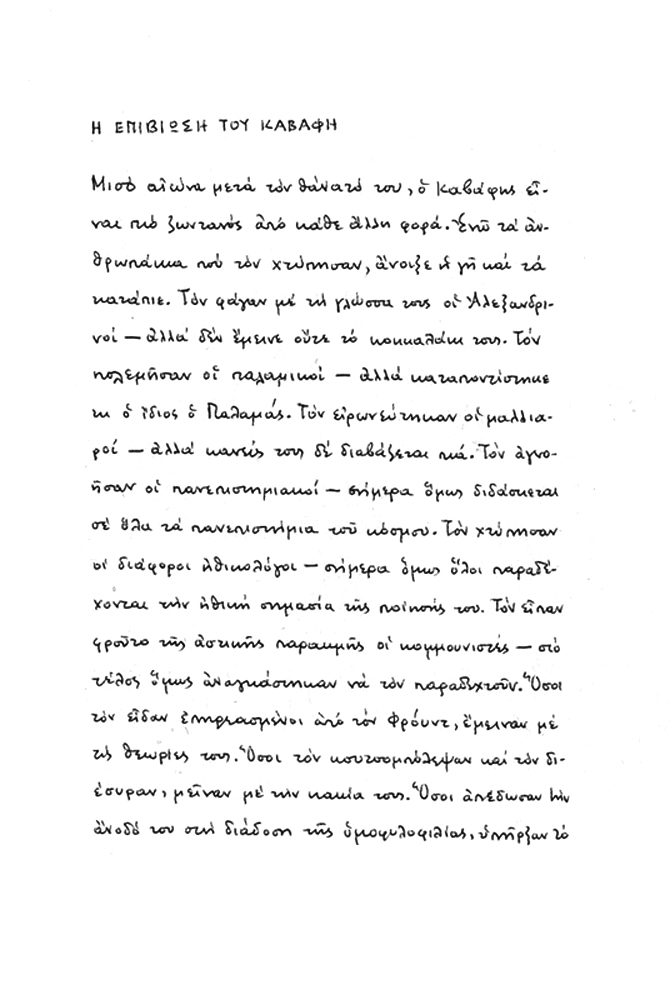 Η ΕΠΙΒΙΩΣΗ ΤΟΥ ΚΑΒΑΦΗ
Μισὸ αἰώνα μετὰ τὸν θάνατό του, ὁ Καβάφης εἶ-
ναι πιὸ ζωντανὸς ἀπὸ κάθε ἄλλη φορά. Ἐνῶ τὰ ἀν-
θρωπάκια ποὺ τὸν χτύπησαν, ἄνοιξε ἡ γῆ καὶ τὰ
κατάπιε. Τὸν φάγαν μὲ τὴ γλώσσα τους οἱ Ἀλεξανδρι-
νοὶ — ἀλλὰ δὲν ἔμεινε οὔτε τὸ κοκκαλάκι τους. Τὸν
πολεμῆσαν οἱ παλαμικοὶ — ἀλλὰ καταποντίστηκε
κι ὁ ἴδιος ὁ Παλαμάς. Τὸν εἰρωνεύτηκαν οἱ μαλλια-
ροὶ — ἀλλὰ κανείς τους δὲ διαβάζεται πιά. Τὸν ἀγνο-
ῆσαν οἱ πανεπιστημιακοὶ — σήμερα ὅμως διδάσκεται
σὲ ὅλα τὰ πανεπιστήμια τοῦ κόσμου. Τὸν χτύπησαν
οἱ διάφοροι ἠθικολόγοι — σήμερα ὅμως ὅλοι παραδέ-
χονται τὴν ἠθικὴ σημασία τῆς ποίησής του. Τὸν εἶπαν
φροῦτο τῆς ἀστικῆς παρακμῆς οἱ κομμουνιστές — στὸ
τέλος ὅμως ἀναγκάστηκαν νὰ τὸν παραδεχτοῦν. Ὅσοι
τὸν εἶδαν ἐπηρεασμένοι ἀπὸ τὸν Φρόυντ, ἔμειναν μὲ
τὶς θεωρίες τους. Ὅσοι τὸν κουτσομπόλεψαν καὶ τὸν δι-
έσυραν, μεῖναν μὲ τὴν κακία τους. Ὅσοι ἀπέδωσαν τὴν
ἄνοδό του στὴ διάδοση τῆς ὁμοφυλοφιλίας, ὑπῆρξαν τὸ